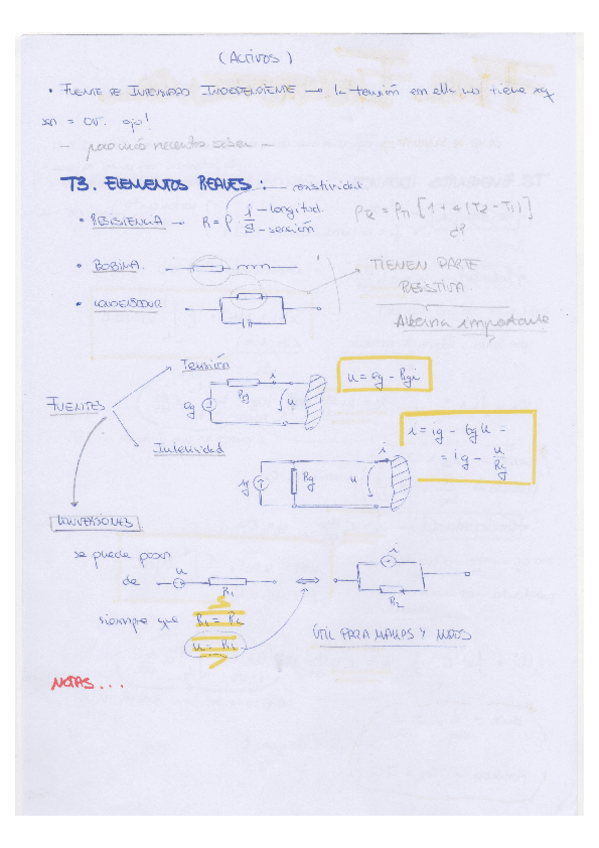 (ACTIVOS)
• FUENTE DE INTENSIDAD INDEPENDIENTE → la tensión en ella no tiene xq
ser = 0V. ojo!
T3. ELEMENTOS REALES:
resistividad
• RESISTENCIA → R = ρ · l/S
longitud
sección
ρT2 = ρT1 [1 + α (T2 - T1)]
• BOBINA.
• CONDENSADOR.
TIENEN PARTE
RESISTIVA
Alterna importante
Tensión
Rg i
u
eg
u = eg - Rgi
FUENTES
Intensidad
i
ig Rg u
i = ig - Ggu =
= ig - u/Rg
CONVERSIONES
se puede pasar
de
u
R1
⇔
i
R2
siempre que R1 = R2
u = Ri
ÚTIL PARA MALLAS Y NUDOS
NOTAS...